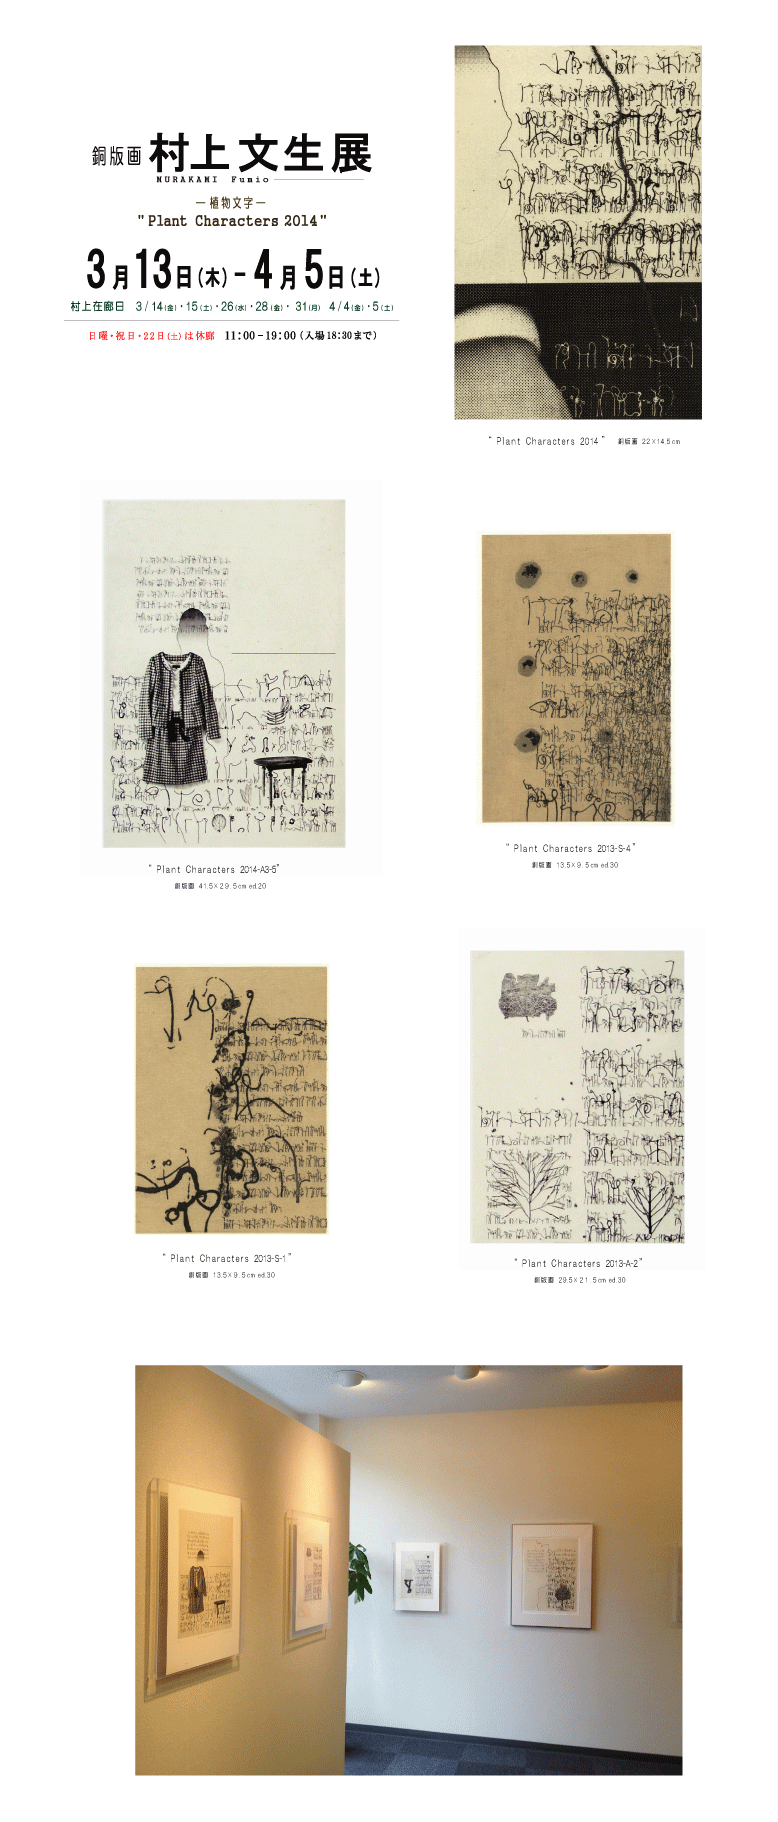 銅版画 村上文生展
MURAKAMI Fumio
―植物文字―
"Plant Characters 2014"
3月13日(木)－4月5日(土)
村上在廊日 3/14(金)・15(土)・26(水)・28(金)・31(月) 4/4(金)・5(土)
日曜・祝日・22日(土)は休廊 11:00－19:00(入場18:30まで)
“Plant Characters 2014” 銅版画 22×14.5cm
“Plant Characters 2014-A3-5”
銅版画 41.5×29.5cm ed.20
“Plant Characters 2013-S-4”
銅版画 13.5×9.5cm ed.30
“Plant Characters 2013-S-1”
銅版画 13.5×9.5cm ed.30
“Plant Characters 2013-A-2”
銅版画 29.5×21.5cm ed.30